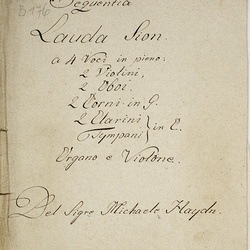 Sequentia
B 176
Lauda Sion.
a 4 Voci in pieno.
2 Violini,
2 Oboi.
2 Corni in G.
2 Clarini
Tympani } in C.
Organo e Violone.
Del Sigre Michaele Haydn.